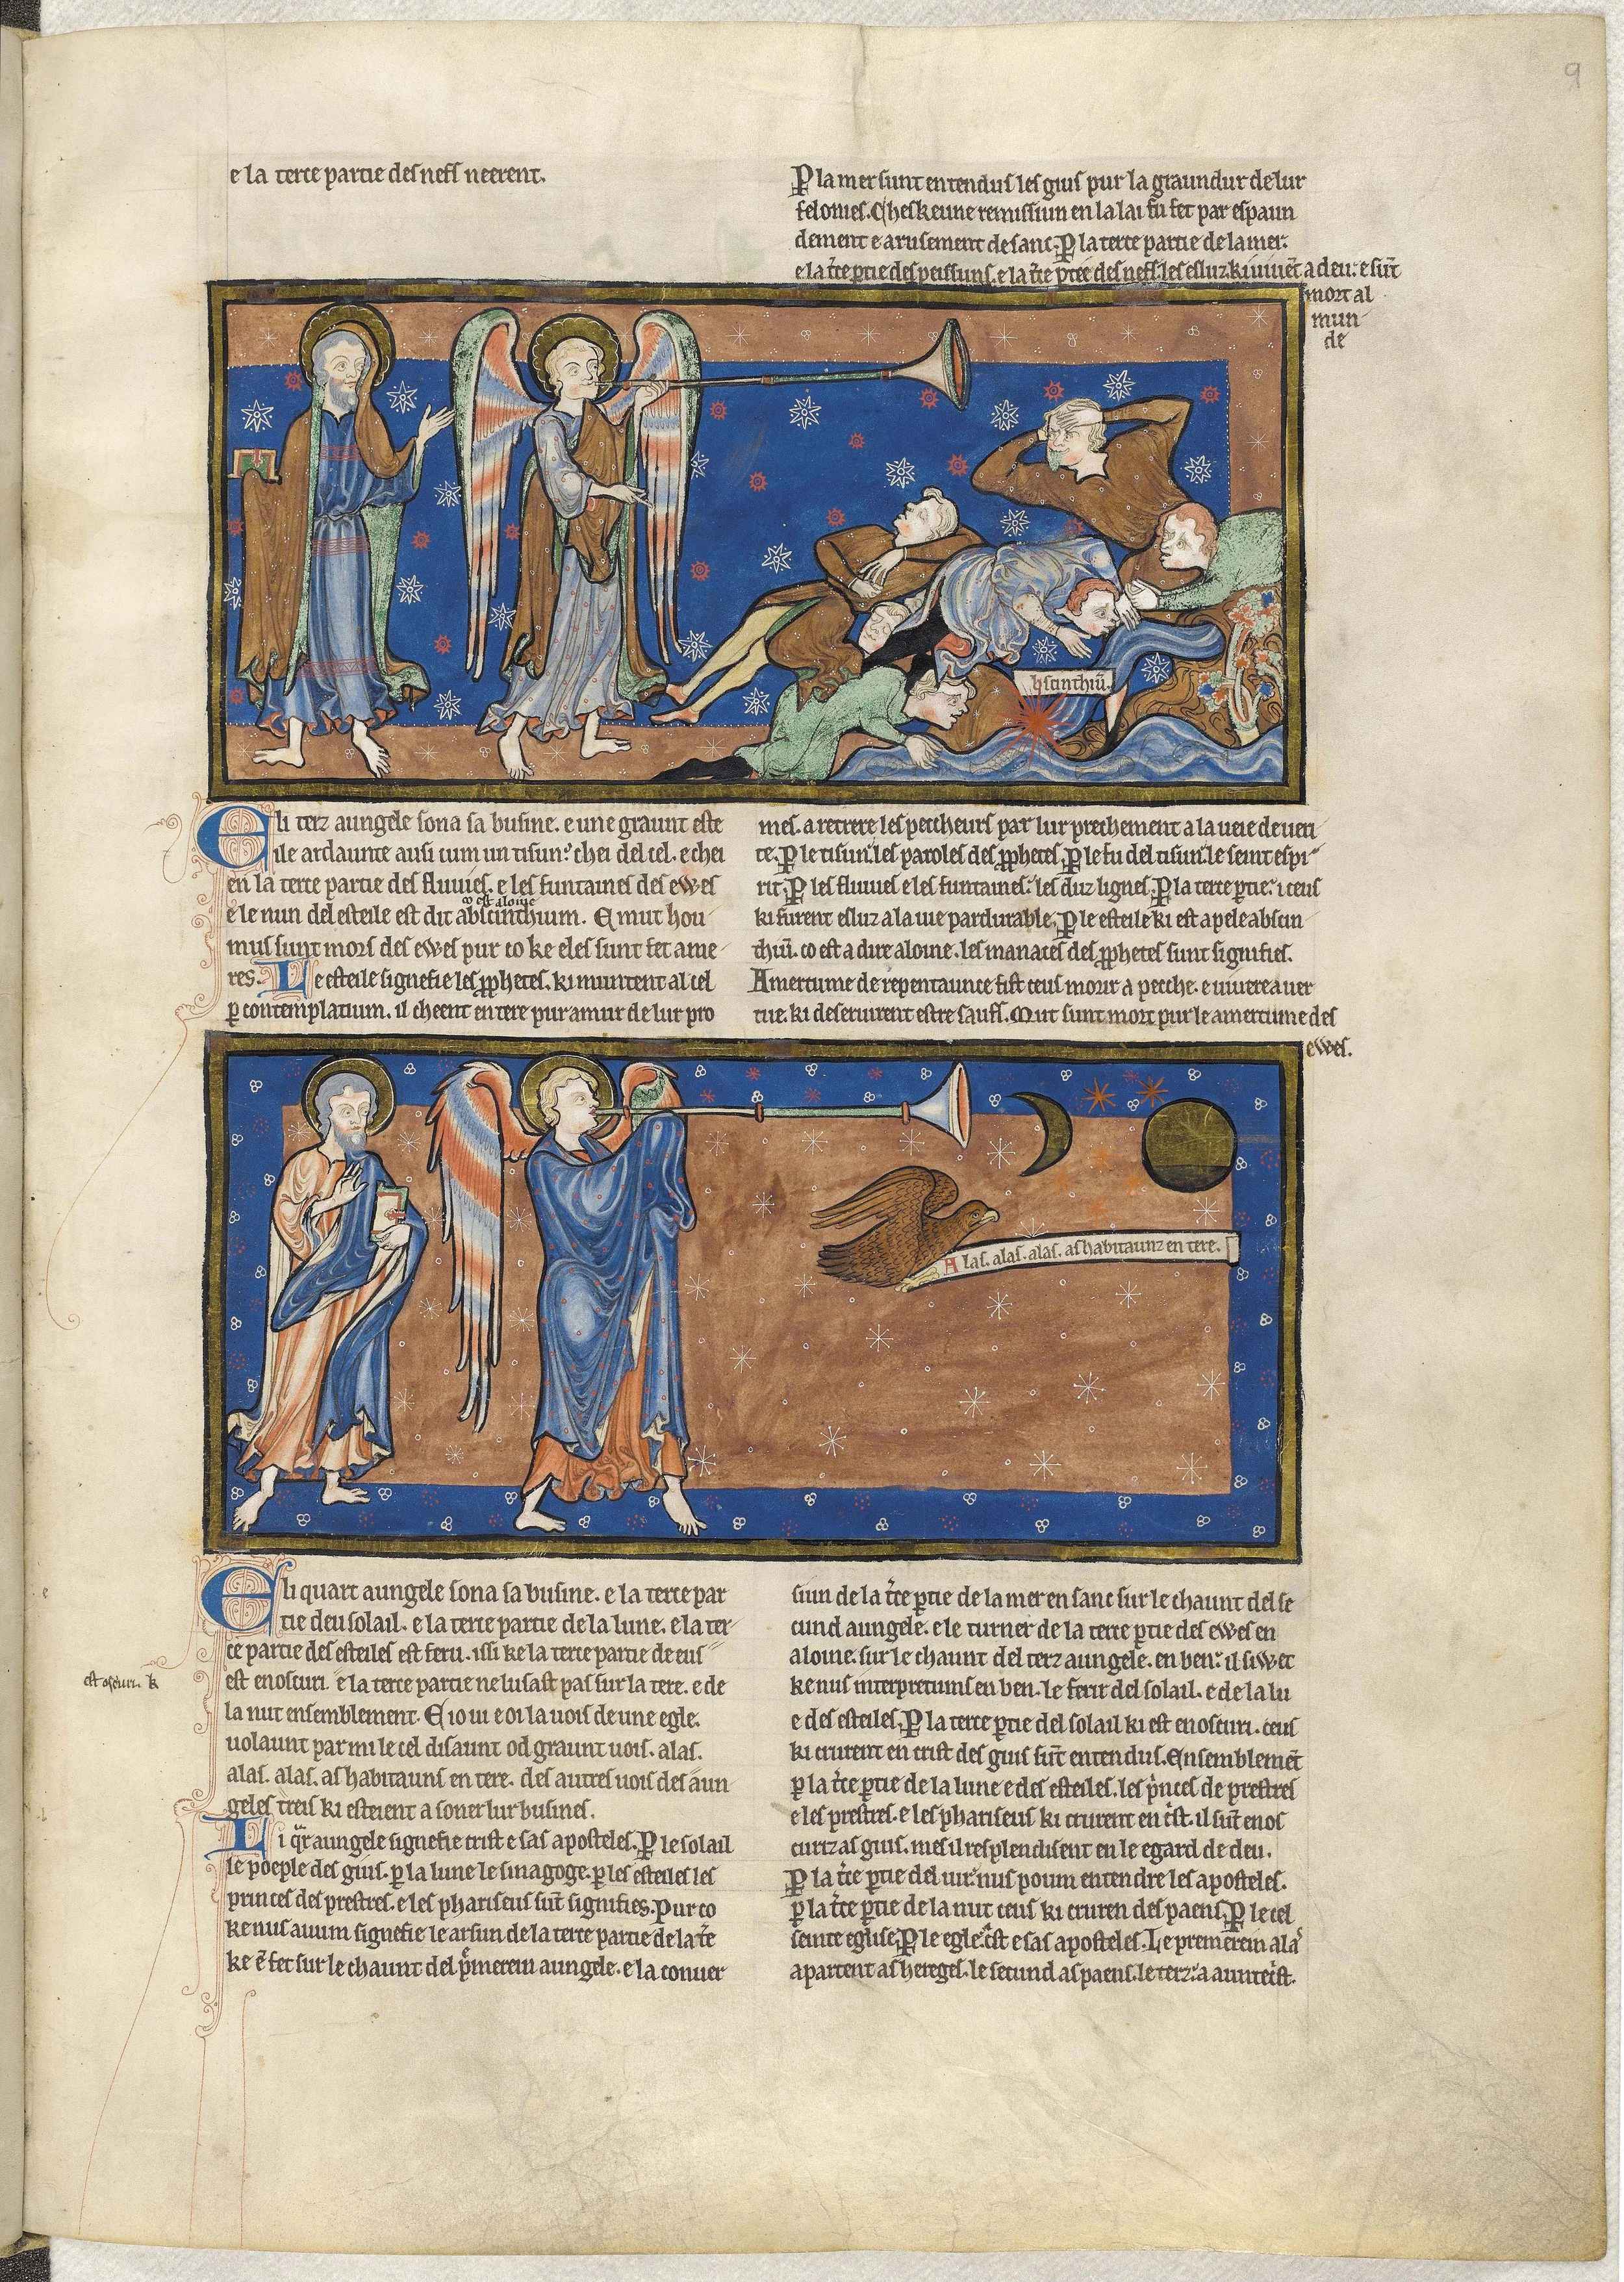 9
e la terce partie des nefs neerent.
P la mer sunt entendus les gius pur la graundur de lur
felonies. Cheskeune remissiun en la lai fu fet par espaun
dement e arusement de sanc. P la terce partie de la mer.
e la t̄ce ꝑtie des peissuns. e la t̄ce ꝑtee des nefs. les esluz ki uiuēt a deu. e sūt
mort al
mun-
de
abscinthiū.
E li terz aungele sona sa busine. e une graunt este
ile ardaunte ausi cum un tisun. chei del cel. e chei
en la terce partie des fluuies. e les funtaines des ewes
co est aloine
e le nun del esteile est dit abscinthium. E mut hou-
mus sunt mors des ewes pur co ke eles sunt fet ame-
res. Le esteile signefie les ꝓphetes. ki muntent al cel
ꝑ contemplatium. il cheent en tere pur amur de lur pro
mes. a retrere les peccheurs par lur prechement a la ueie de ueri-
te. P le tisun. les paroles des ꝓphetes. P le fu del tisun. le seint espi-
rit. P les fluuies e les funtaines. les duz lignes. P la terce ꝑtie. iceus
ki furent esluz a la uie pardurable. P le esteile ki est apele abscin-
thiū. co est a dire aloine. les manaces des ꝓphetes sunt signifies.
Amertume de repentaunce fist ceus morir a pecche. e uiuere a uer
tue. ki deseruirent estre saufs. Mut sunt mort pur le amertume des
ewes.
Alas. alas. alas. as habitaunz en tere.
E li quart aungele sona sa busine. e la terce par
tie deu solail. e la terce partie de la lune. e la ter-
ce partie des esteiles est feru. issi ke la terce partie de eus
est enoscuri. e la terce partie ne lusast pas sur la tere. e de
est oscuri. k
la nut ensemblement. E io ui e oi la uois de une egle.
uolaunt par mi le cel disaunt od graunt uois. alas.
alas. alas. as habitauns en tere. des autres uois des aun
geles treis ki esteient a soner lur busines.
Li q̃r aungele signefie crist e sas aposteles. P le solail
le poeple des gius. ꝑ la lune le sinagoge. ꝑ les esteiles les
princes des prestres. e les phariseus sūt signifies. Pur co
ke nus auum signefie le arsun de la terce partie de la t̄e
ke ē fet sur le chaunt del p̃merein aungele. e la conuer
siun de la t̄ce ꝑtie de la mer en sanc sur le chaunt del se
cund aungele. e le turner de la terce ꝑtie des ewes en
aloine. sur le chaunt del terz aungele. en ben. il siwet
ke nus interpretums en ben. le ferir del solail. e de la lu
e des esteiles. P la terce ꝑtie del solail ki est enoscuri. ceus
ki crurent en crist des gius sūt entendus. Ensemblemēt
ꝑ la t̄ce ꝑtie de la lune e des esteiles. les p̃nces de prestres
e les prestres. e les phariseus ki crurent en c̃st. il sūt enos
curiz as gius. mes il resplendisent en le egard de deu.
P la t̄ce ꝑtie del iur. nus poum entendre les aposteles.
ꝑ la t̄ce ꝑtie de la nut ceus ki cruren des paens. P le cel
seinte eglise. P le egle. c̃st e sas aposteles. Le premerein ala
apartent as hereges. le secund as paens. le terz. a auntec̃st.